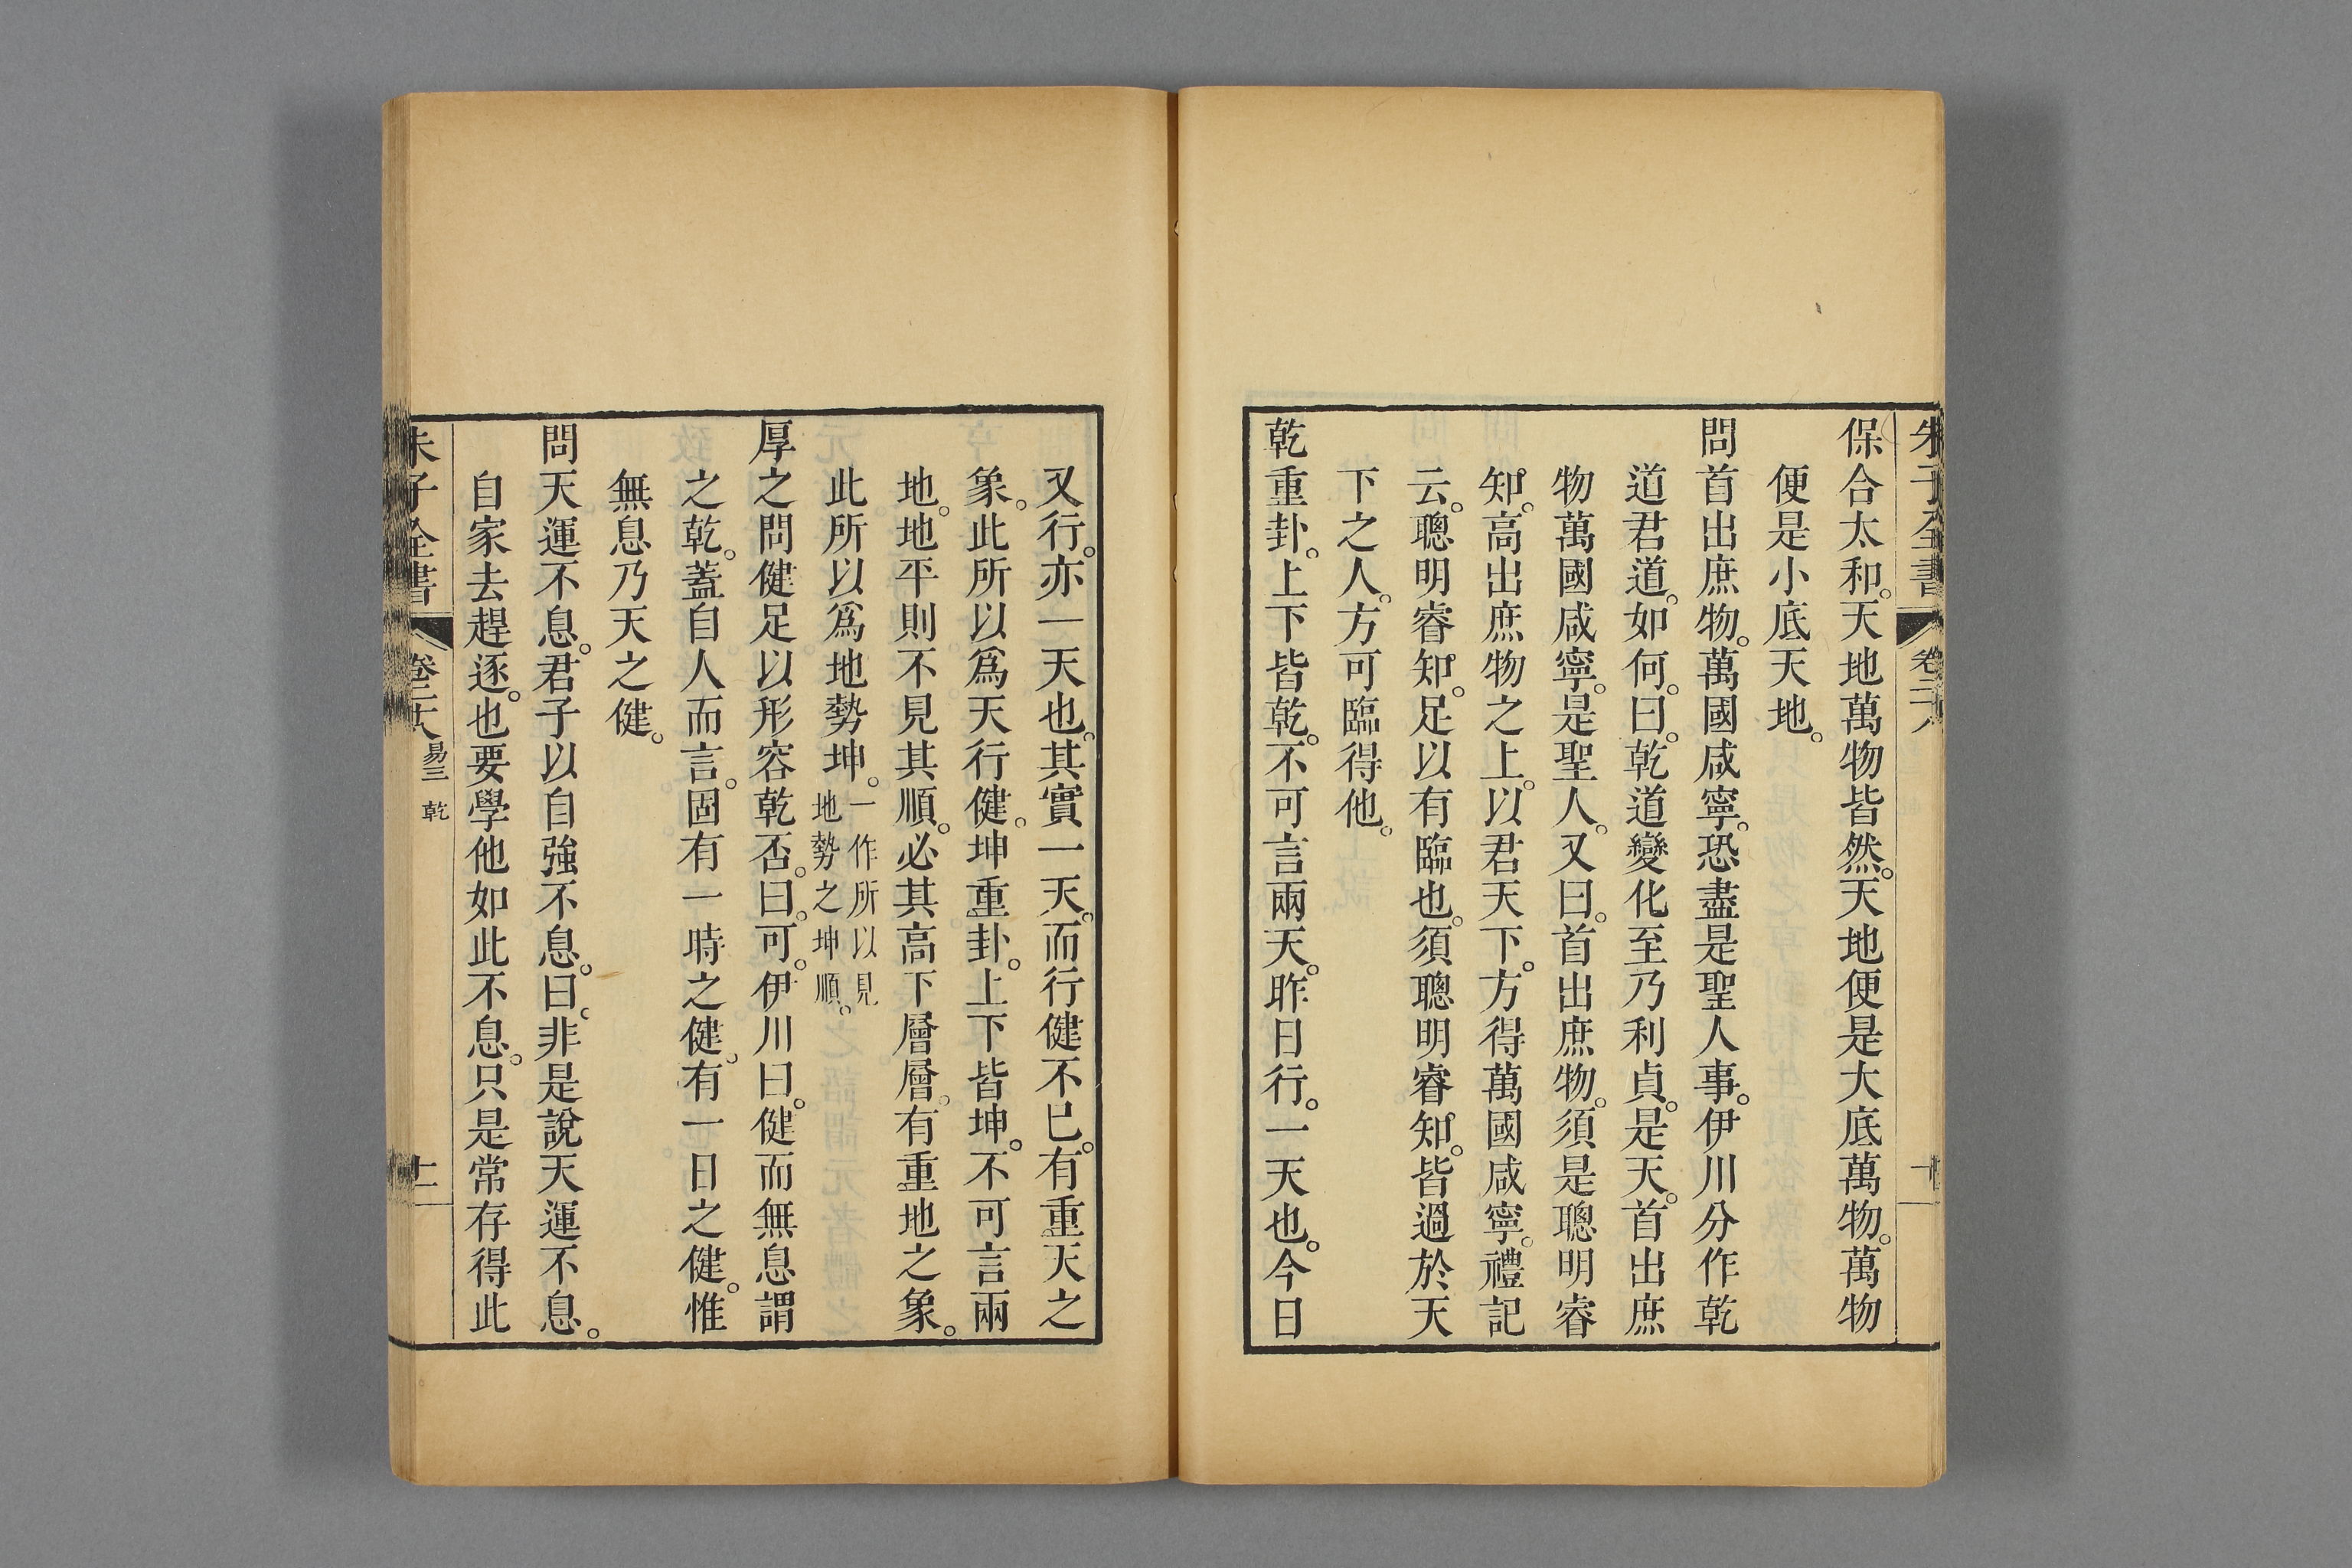 朱子全書 卷二十八
保合太和。天地萬物皆然。天地便是大底萬物。萬物
便是小底天地。
問首出庶物。萬國咸寧。恐盡是聖人事。伊川分作乾
道君道。如何。曰。乾道變化至乃利貞。是天。首出庶
物萬國咸寧。是聖人。又曰。首出庶物。須是聰明睿
知。高出庶物之上。以君天下。方得萬國咸寧。禮記
云。聰明睿知。足以有臨也。須聰明睿知。皆過於天
下之人。方可臨得他。
乾重卦。上下皆乾。不可言兩天。昨日行。一天也。今日
又行。亦一天也。其實一天。而行健不已。有重天之
象。此所以爲天行健。坤重卦。上下皆坤。不可言兩
地。地平則不見其順。必其高下層層。有重地之象。
此所以爲地勢坤。一作所以見
地勢之坤順。
厚之問健足以形容乾否。曰。可。伊川曰。健而無息謂
之乾。蓋自人而言。固有一時之健。有一日之健。惟
無息乃天之健。
問天運不息。君子以自強不息。曰。非是說天運不息。
自家去趕逐。也要學他如此不息。只是常存得此
朱子全書 卷二十八 易三 乾 十一